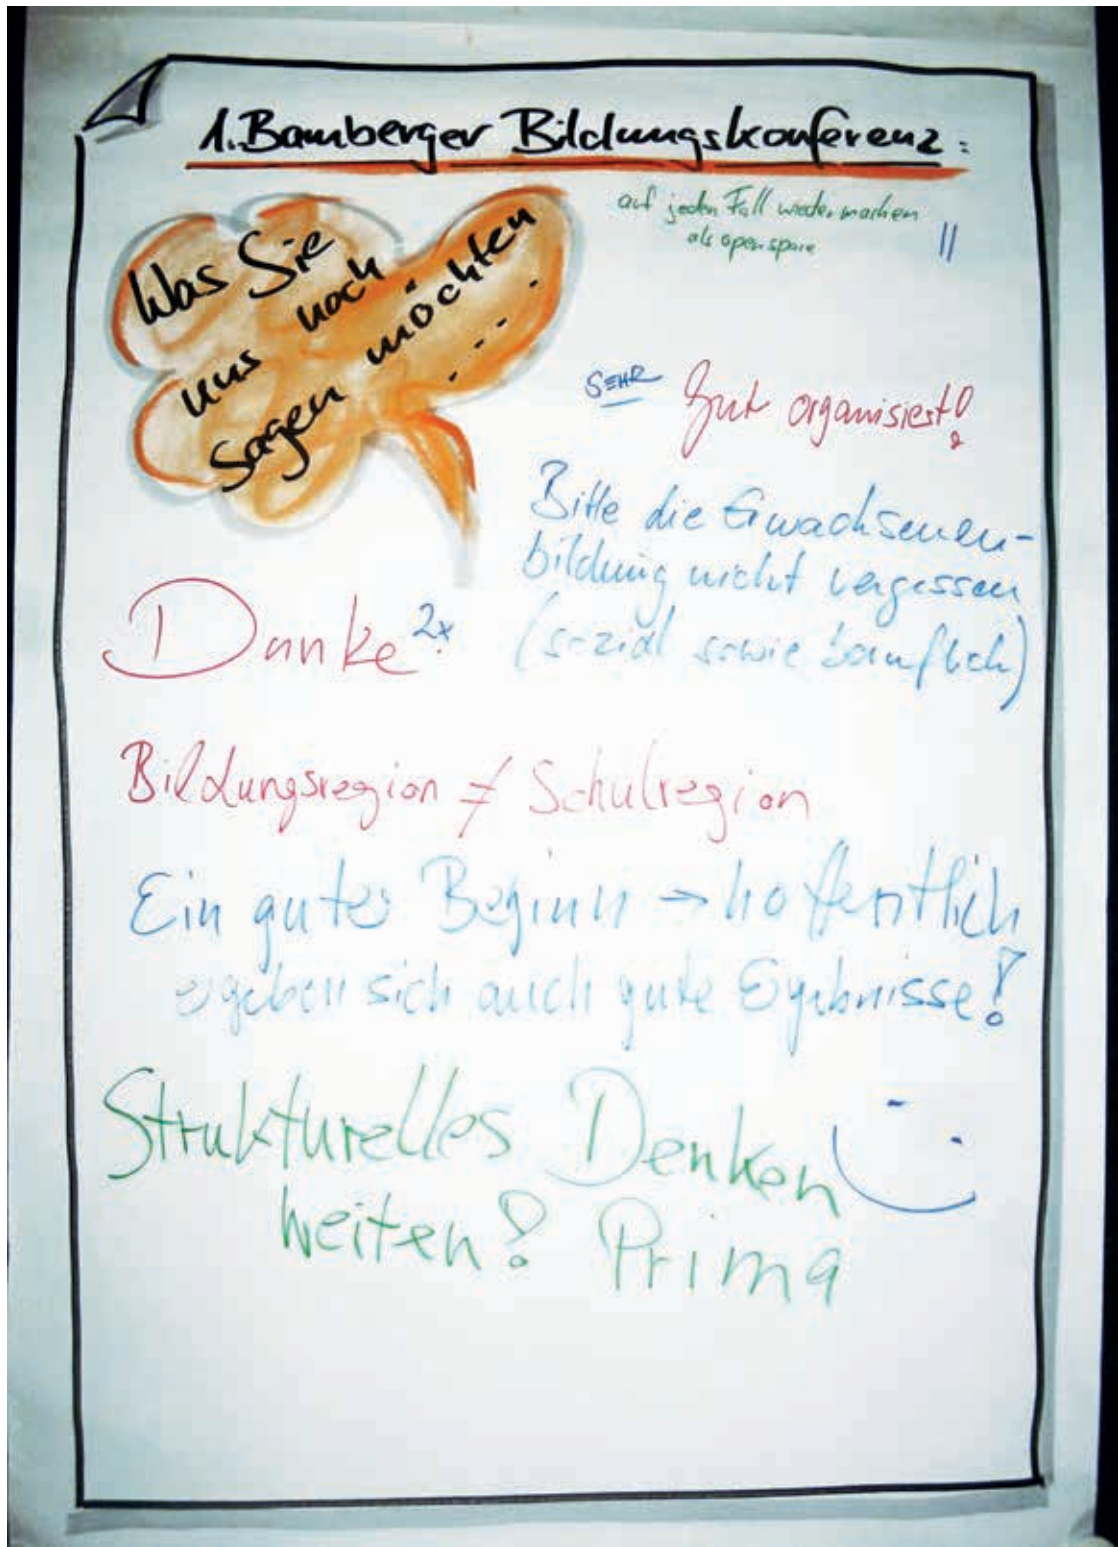 1. Bamberger Bildungskonferenz:
Was Sie
uns noch
sagen möchten
....
auf jeden Fall wieder machen
als open space
||
SEHR Gut organisiert!
Bitte die Erwachsenen-
bildung nicht vergessen
(sozial sowie beruflich)
Danke 2x
Bildungsregion ≠ Schulregion
Ein guter Beginn → hoffentlich
ergeben sich auch gute Ergebnisse!
Strukturelles Denken
weiten! Prima